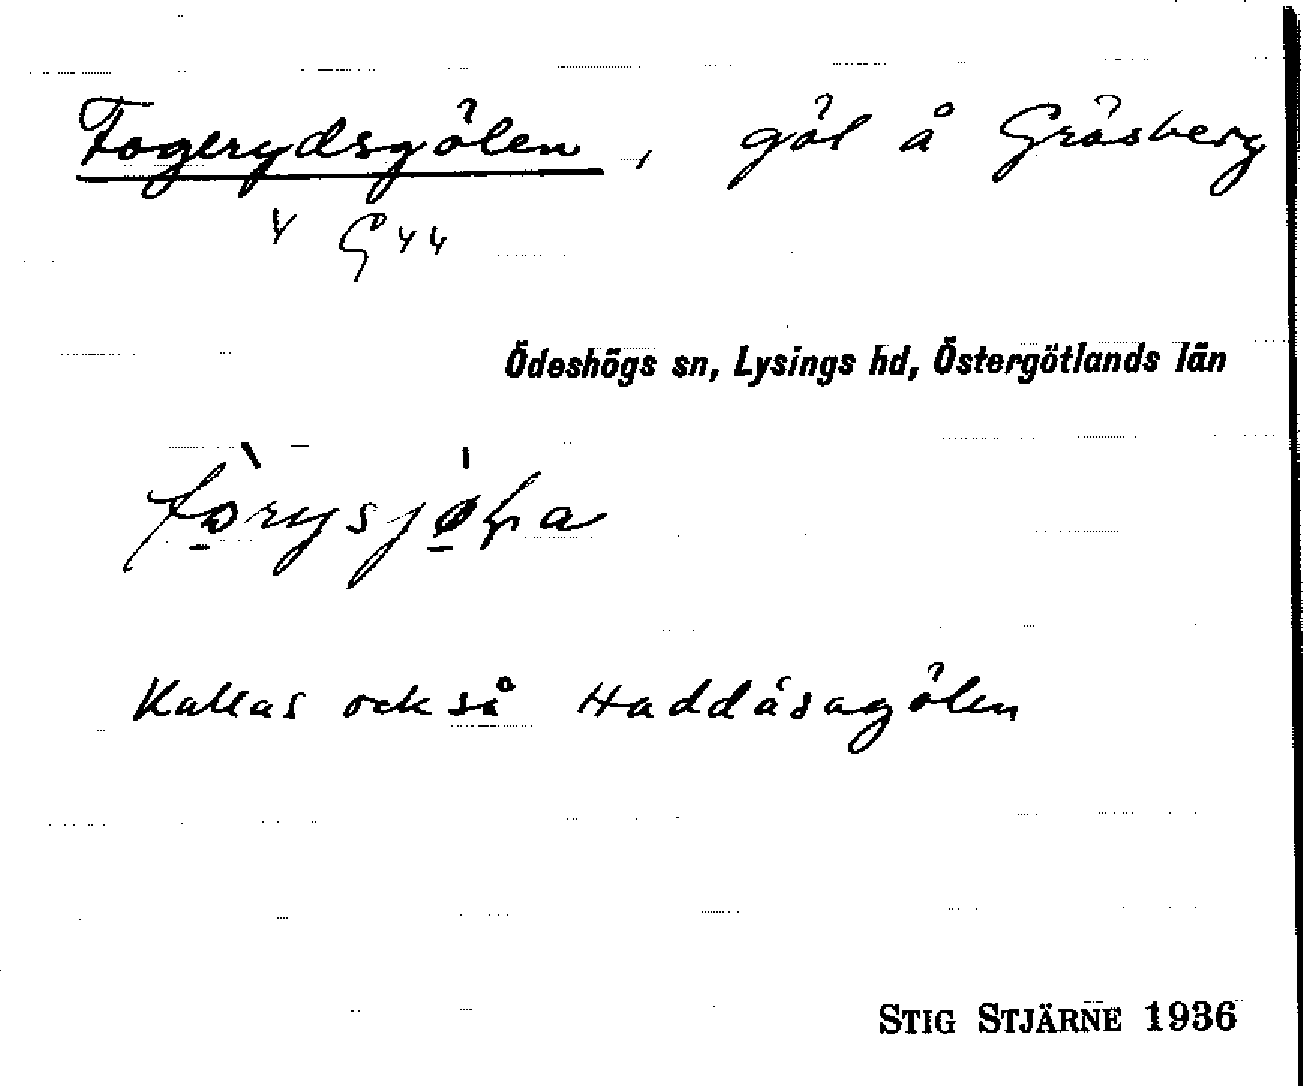 Fogerydsgölen, göl å Gräsberg
v G44
Ödeshögs sn, Lysings hd, Östergötlands län
Kallas också Haddåsagölen
STIG STJÄRNE 1936